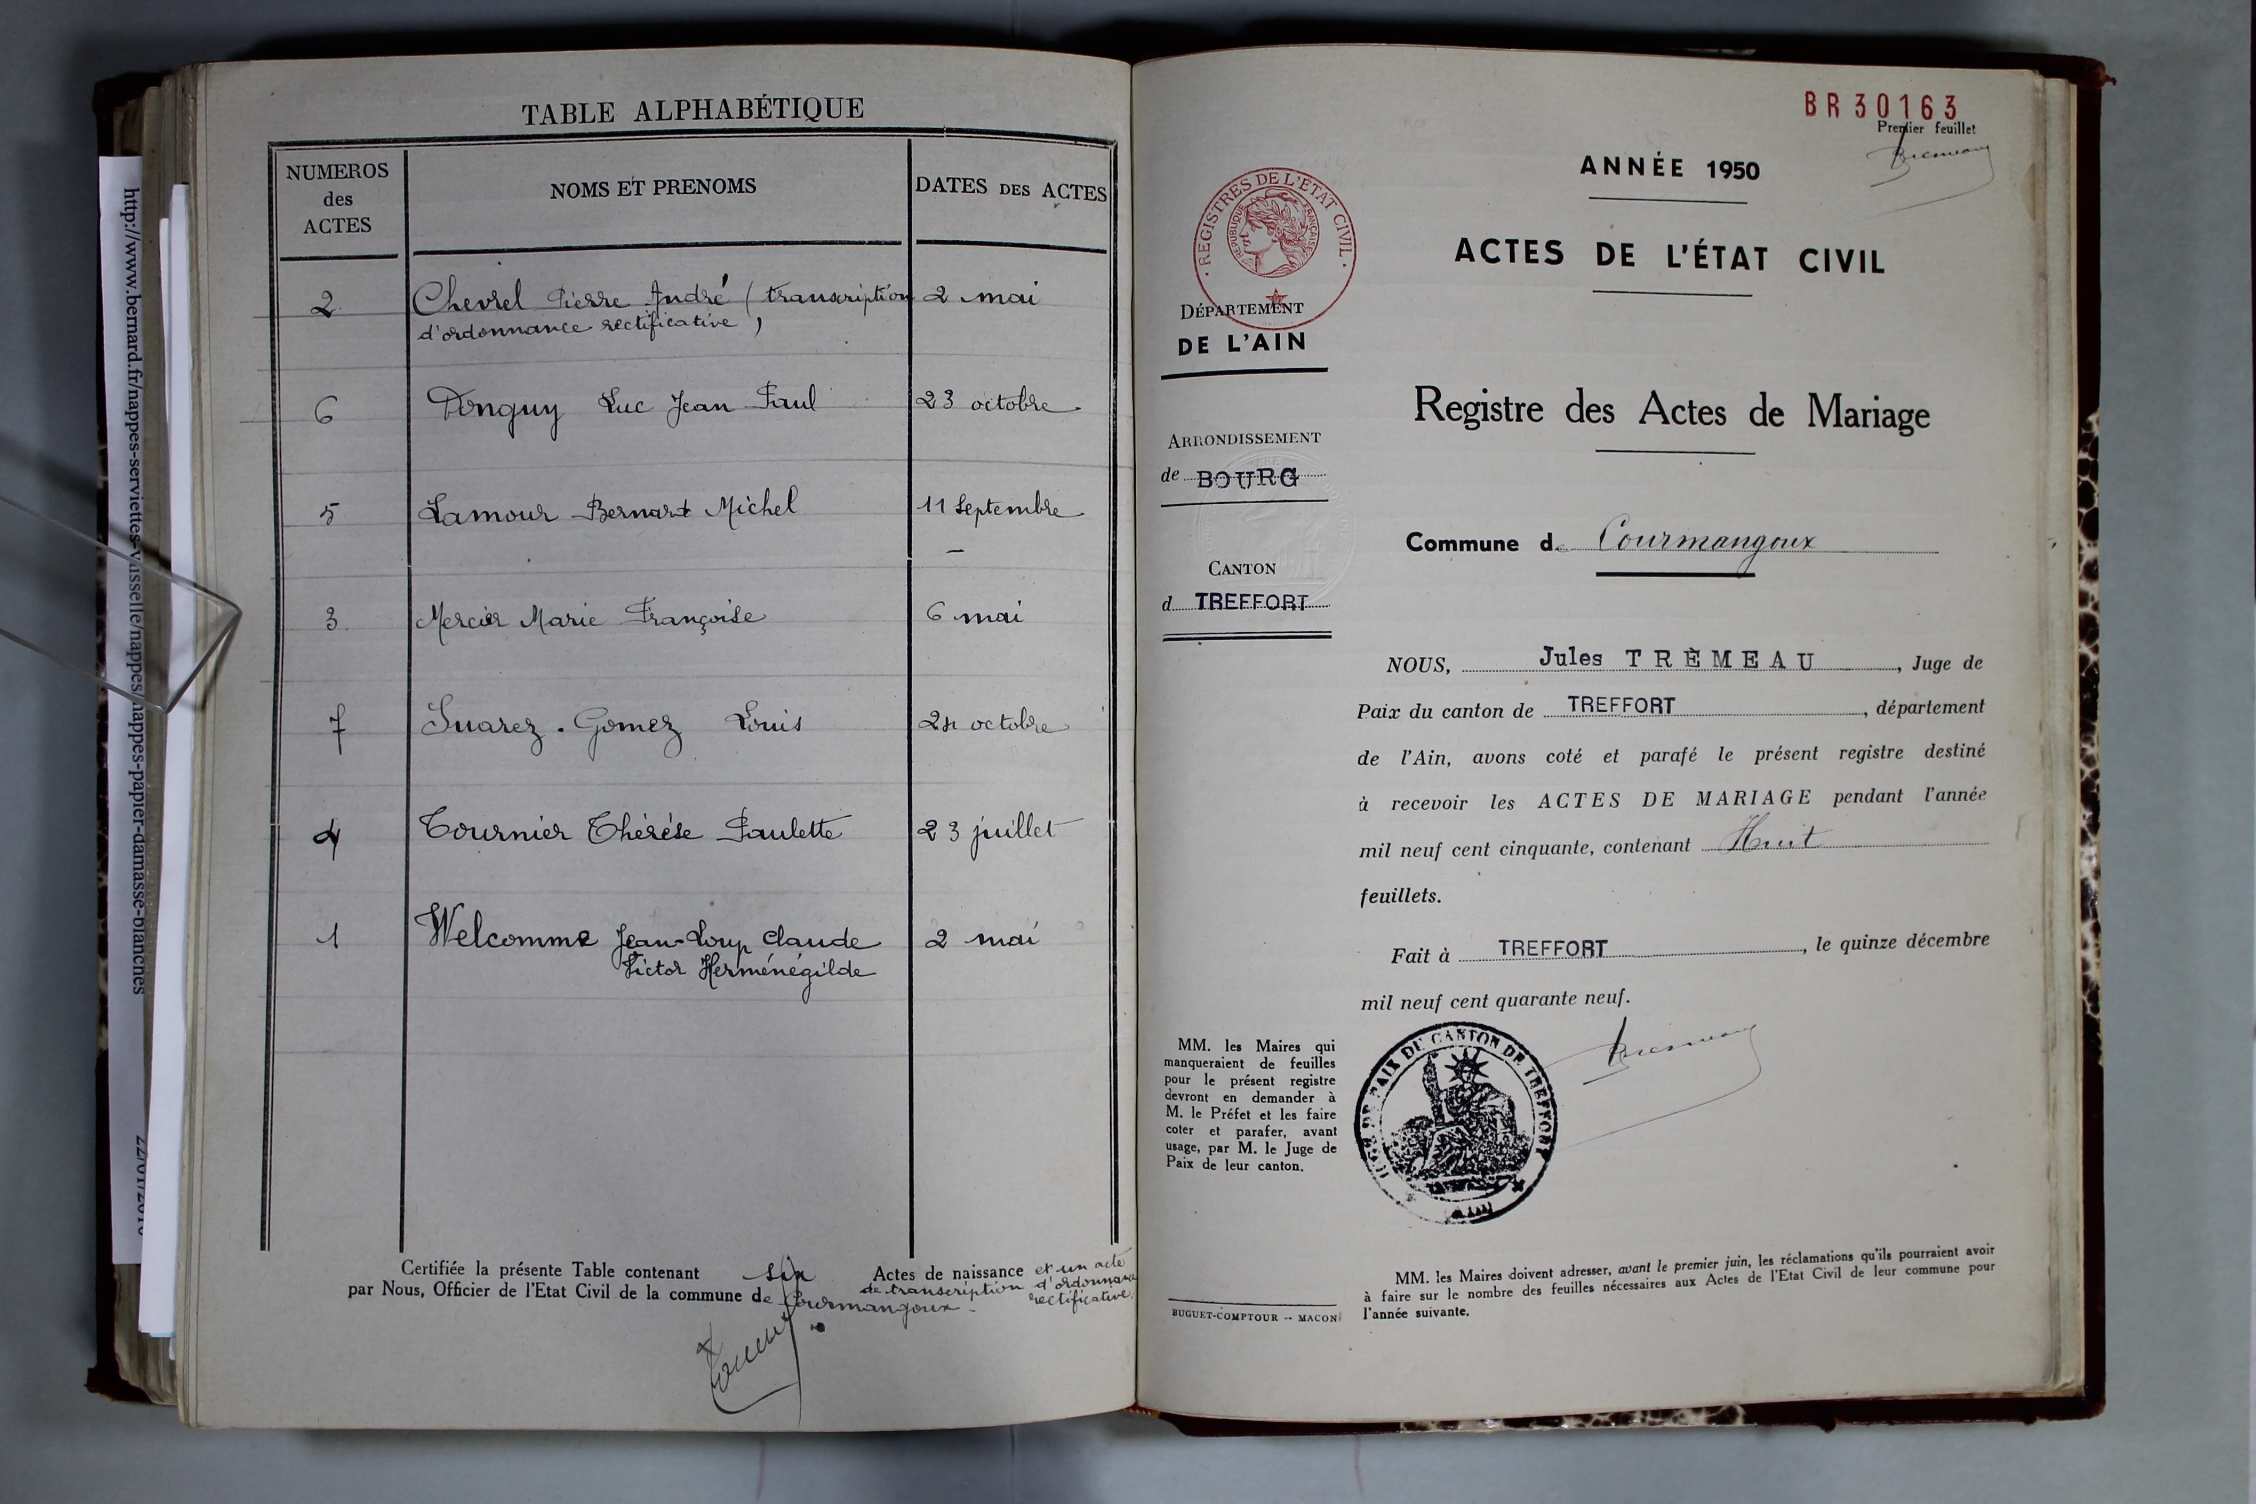 TABLE ALPHABÉTIQUE
NUMEROS
des
ACTES
NOMS ET PRENOMS
DATES DES ACTES
2 Chevrel Pierre André (transcription 2 mai
d'ordonnance rectificative)
6 Donguy Luc Jean Paul 23 octobre
5 Lamour Bernard Michel 11 Septembre
3 Mercier Marie Françoise 6 mai
7 Suarez-Gomez Louis 24 octobre
4 Tournier Thérèse Paulette 23 juillet
1 Welcomme Jean-Loup Claude 2 mai
Victor Herménégilde
Certifiée la présente Table contenant six Actes de naissance et un acte
de transcription d'ordonnance
rectificative.
par Nous, Officier de l'Etat Civil de la commune de Courmangoux
http://www.bernard.fr/nappes-serviettes-vaisselle/nappes/nappes-papier-damasse-blanches
22/01/2016
BR30163
Premier feuillet
ANNÉE 1950
ACTES DE L'ÉTAT CIVIL
· REGISTRES DE L'ETAT CIVIL ·
REPUBLIQUE FRANÇAISE
DÉPARTEMENT
DE L'AIN
Registre des Actes de Mariage
ARRONDISSEMENT
de BOURG
Commune de Courmangoux
CANTON
d TREFFORT
NOUS, Jules TRÈMEAU, Juge de
Paix du canton de TREFFORT, département
de l'Ain, avons coté et parafé le présent registre destiné
à recevoir les ACTES DE MARIAGE pendant l'année
mil neuf cent cinquante, contenant Huit
feuillets.
Fait à TREFFORT, le quinze décembre
mil neuf cent quarante neuf.
MM. les Maires qui
manqueraient de feuilles
pour le présent registre
devront en demander à
M. le Préfet et les faire
coter et parafer, avant
usage, par M. le Juge de
Paix de leur canton.
DE PAIX DU CANTON DE TREFFORT
(AIN)
MM. les Maires doivent adresser, avant le premier juin, les réclamations qu'ils pourraient avoir
à faire sur le nombre des feuilles nécessaires aux Actes de l'Etat Civil de leur commune pour
l'année suivante.
BUGUET-COMPTOUR -- MACON